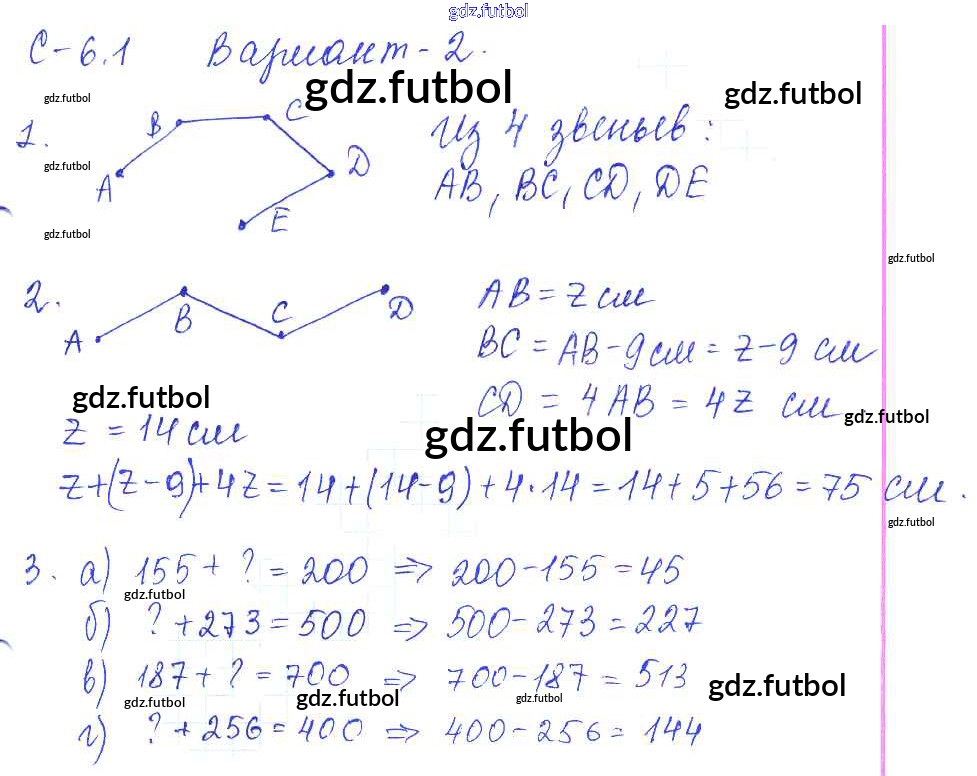 gdz.futbol
С-6.1 Вариант-2.
gdz.futbol gdz.futbol
gdz.futbol
1. A B C D E
Из 4 звеньев:
gdz.futbol
AB, BC, CD, DE
gdz.futbol
gdz.futbol
2. A B C D
AB = z см
BC = AB - 9 см = z - 9 см
CD = 4 AB = 4z см
gdz.futbol
gdz.futbol
z = 14 см
gdz.futbol
z+(z-9)+4z = 14+(14-9)+4·14 = 14+5+56 = 75 см.
gdz.futbol
3. а) 155 + ? = 200 => 200-155=45
gdz.futbol
б) ? +273 = 500 => 500-273=227
в) 187+ ? = 700 => 700-187 = 513
gdz.futbol gdz.futbol gdz.futbol gdz.futbol
г) ? + 256 = 400 => 400-256= 144